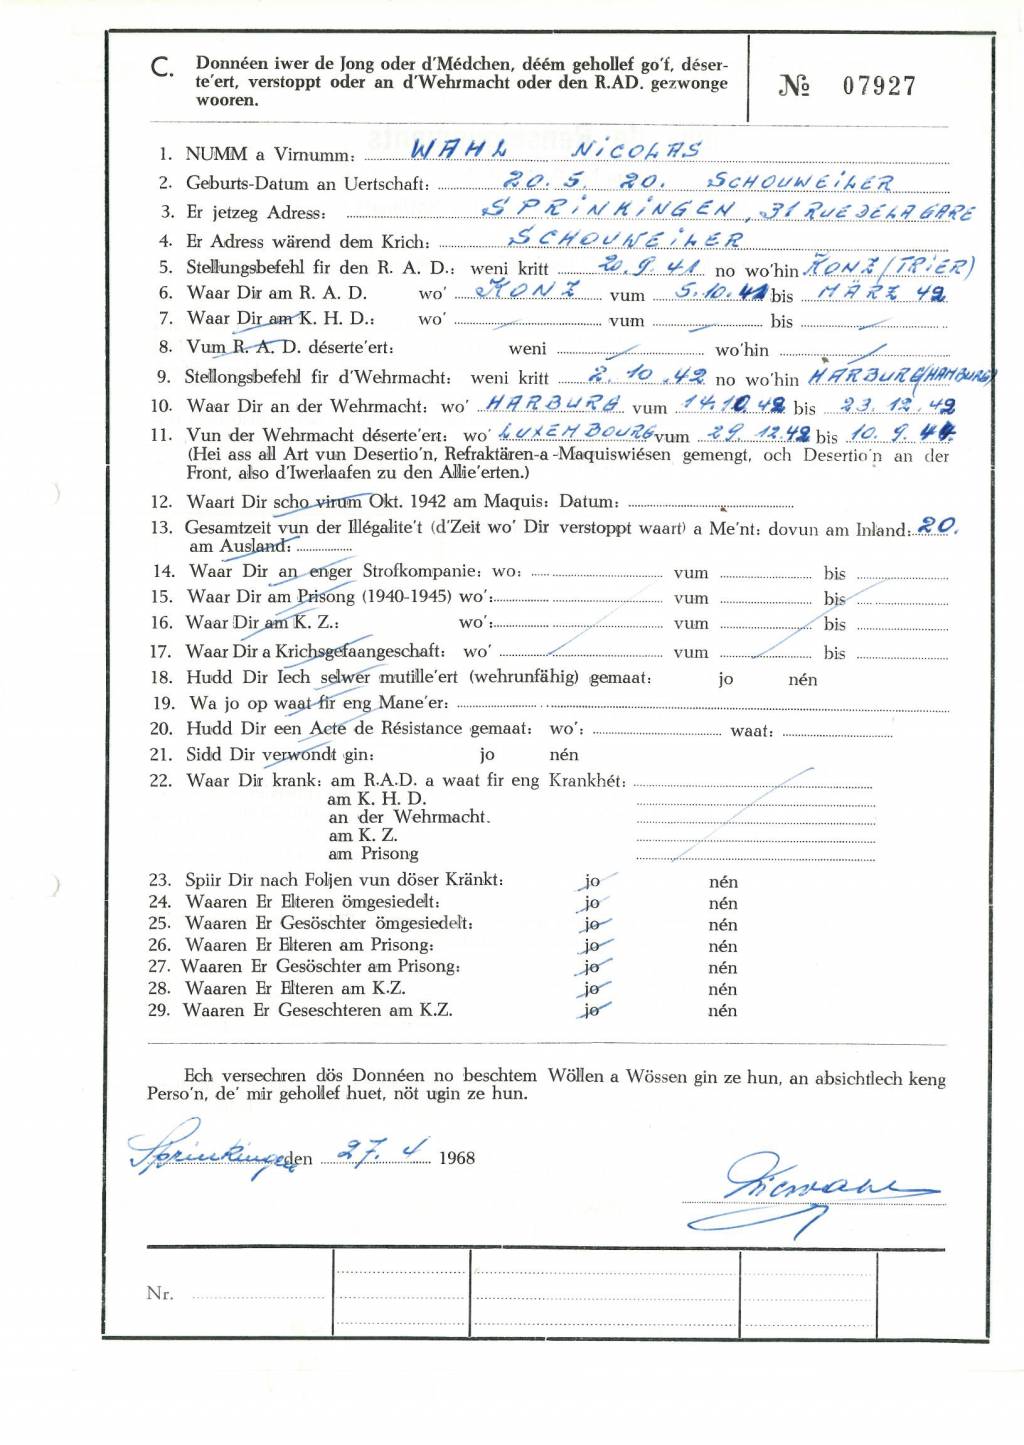 C. Donnéen iwer de Jong oder d'Médchen, déém gehollef go'f, déser-
te'ert, verstoppt oder an d'Wehrmacht oder den R.AD. gezwonge
wooren.
№ 07927
1. NUMM a Virnumm: WAHL NICOLAS
2. Geburts-Datum an Uertschaft: 20. 5. 20. SCHOUWEILER
3. Er jetzeg Adress: SPRINKINGEN, 31 RUE DE LA GARE
4. Er Adress wärend dem Krich: SCHOUWEILER
5. Stellungsbefehl fir den R. A. D.: weni kritt 20.9.41 no wo'hin KONZ/(TRIER)
6. Waar Dir am R. A. D. wo' KONZ vum 5.10.41 bis MÄRZ 42
7. Waar Dir am K. H. D.: wo' vum bis
8. Vum R. A. D. déserte'ert: weni wo'hin
9. Stellongsbefehl fir d'Wehrmacht: weni kritt 2. 10 .42 no wo'hin HARBURG/(HAMBURG)
10. Waar Dir an der Wehrmacht: wo' HARBURG vum 14.10.42 bis 23.12.42
11. Vun der Wehrmacht déserte'ert: wo' LUXEMBOURG vum 29.12.42 bis 10.9.44.
(Hei ass all Art vun Desertio'n, Refraktären-a-Maquiswiésen gemengt, och Desertio'n an der
Front, also d'Iwerlaafen zu den Allie'erten.)
12. Waart Dir scho virum Okt. 1942 am Maquis: Datum:
13. Gesamtzeit vun der Illégalite't (d'Zeit wo' Dir verstoppt waart) a Me'nt: dovun am Inland: 20.
am Ausland:
14. Waar Dir an enger Strofkompanie: wo: vum bis
15. Waar Dir am Prisong (1940-1945) wo': vum bis
16. Waar Dir am K. Z.: wo': vum bis
17. Waar Dir a Krichsgefaangeschaft: wo' vum bis
18. Hudd Dir Iech selwer mutille'ert (wehrunfähig) gemaat: jo nén
19. Wa jo op waat fir eng Mane'er:
20. Hudd Dir een Acte de Résistance gemaat: wo': waat:
21. Sidd Dir verwondt gin: jo nén
22. Waar Dir krank: am R.A.D. a waat fir eng Krankhét:
am K. H. D.
an der Wehrmacht.
am K. Z.
am Prisong
23. Spiir Dir nach Foljen vun döser Kränkt: jo nén
24. Waaren Er Elteren ömgesiedelt: jo nén
25. Waaren Er Gesöschter ömgesiedelt: jo nén
26. Waaren Er Elteren am Prisong: jo nén
27. Waaren Er Gesöschter am Prisong: jo nén
28. Waaren Er Elteren am K.Z. jo nén
29. Waaren Er Geseschteren am K.Z. jo nén
Ech versechren dös Donnéen no beschtem Wöllen a Wössen gin ze hun, an absichtlech keng
Perso'n, de' mir gehollef huet, nöt ugin ze hun.
Sprinkingen den 27. 4 1968
Nicwahl
Nr.